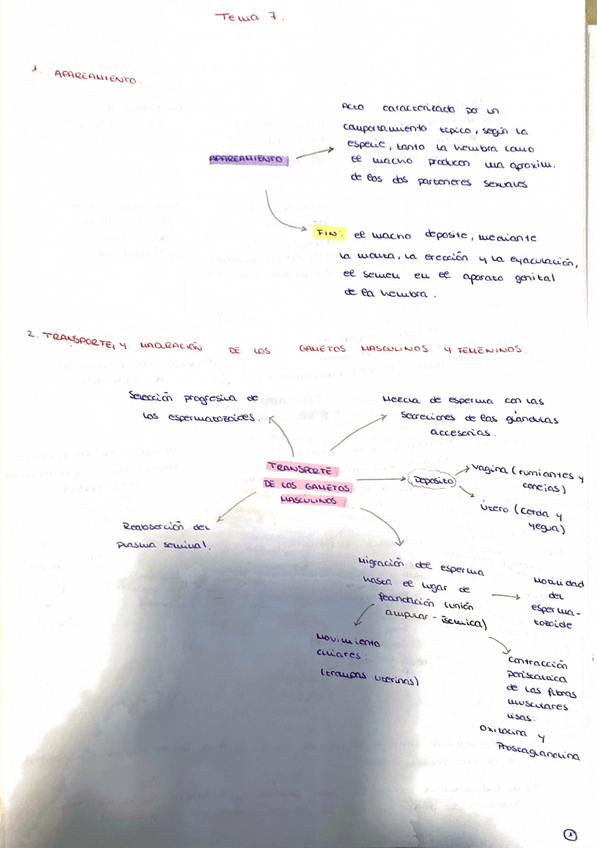 Tema 7.
1. APAREAMIENTO.
Acto caracterizado por un
comportamiento típico, según la
especie, tanto la hembra como
el macho producen una aproxim.
de los dos parteneres sexuales
APAREAMIENTO
FIN: el macho deposite, mediante
la monta, la erección y la eyaculación,
el semen en el aparato genital
de la hembra.
2. TRANSPORTE, Y MADURACIÓN DE LOS GAMETOS MASCULINOS Y FEMENINOS.
Selección progresiva de
los espermatozoides.
Mezcla de esperma con las
secreciones de las glándulas
accesorias.
TRANSPORTE
DE LOS GAMETOS
MASCULINOS
Deposito
Vagina (rumiantes y
conejas)
Útero (cerda y
yegua)
Reabsorción del
plasma seminal.
Migración del esperma
hasta el lugar de
fecundación (unión
ampular-ísmica)
Motilidad
del
esperma-
tozoide
Movimiento
ciliares:
(trompas uterinas)
Contracción
peristáltica
de las fibras
musculares
lisas:
Oxitocina y
Prostaglandina
1